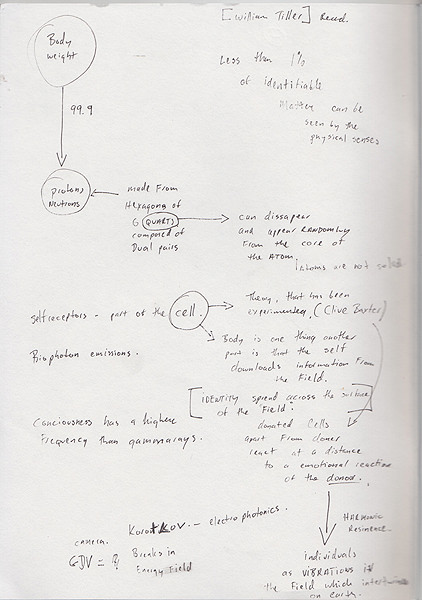 [William Tiller] Read.
Body
weight
Less than 1%
of identifiable
Matter can be
seen by the
physical senses
99.9
Protons
Neutrons
made From
Hexagons of
6 QUARTS
composed of
Dual pairs
can dissapear
and appear RANDOMLY
From the core of
the ATOM.
Atoms are not solid
selfreceptors - part of the cell.
Theory, that has been
experimented. (Clive Baxter)
Biophoton emissions.
Body is one thing another
part is that the self
downloads information From
the Field.
[IDENTITY spread across the surface
of the Field.]
Consciousness has a higher
Frequency than gammarays.
donated Cells
apart From doner
react at a distance
to a emotional reaction
of the donor.
HARMONIC
Resonence
Korotkov. - electrophotonics.
camera.
GDV =
Breaks in
Energy Field
individuals
as VIBRATIONS in
the Field which
on earth.